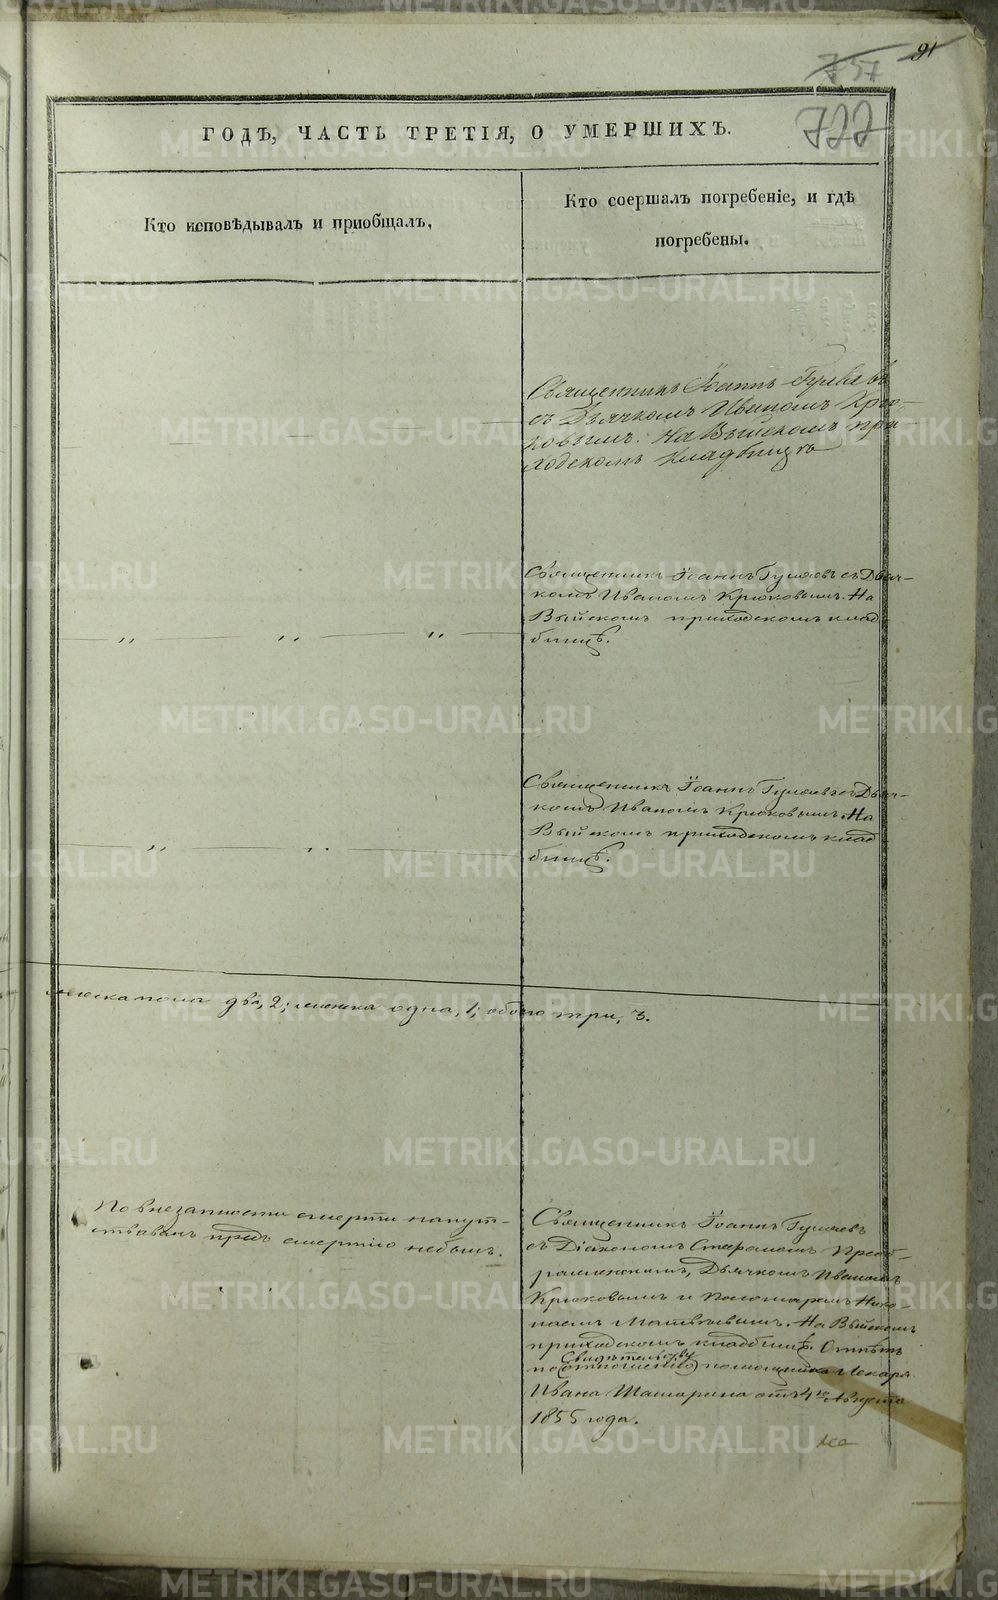 91
757
722
ГОДѢ, ЧАСТЬ ТРЕТІЯ, О УМЕРШИХЪ.
Кто исповѣдывалъ и пріобщалъ,
Кто соершалъ погребеніе, и гдѣ
погребены.
Священникъ Іоаннъ Гуляевъ
съ Дьячкомъ Иваномъ Крю-
ковымъ. На Выйскомъ при-
ходскомъ кладбищѣ
Священникъ Іоаннъ Гуляевъ съ Дьяч-
комъ Иваномъ Крюковымъ. На
Выйскомъ приходскомъ клад-
бищѣ.
Священникъ Іоаннъ Гуляевъ съ Дьяч-
комъ Иваномъ Крюковымъ. На
Выйскомъ приходскомъ клад-
бищѣ.
мужска пола два, 2; женска одна, 1; обоего три, 3.
По внезапности смерти напут-
ствованъ предъ смертію небылъ.
Священникъ Іоаннъ Гуляевъ
съ Діакономъ Стефаномъ Преоб-
раженскимъ, Дьячкомъ Иваномъ
Крюковымъ и Пономаремъ Нико-
лаемъ Матвѣевымъ. На Выйскомъ
приходскомъ кладбищѣ. Отпѣтъ
свидѣтельству
по (отношенію) помощника Лекаря
Ивана Шашарина отъ 4го Августа
1855 года.
METRIKI.GASO-URAL.RU